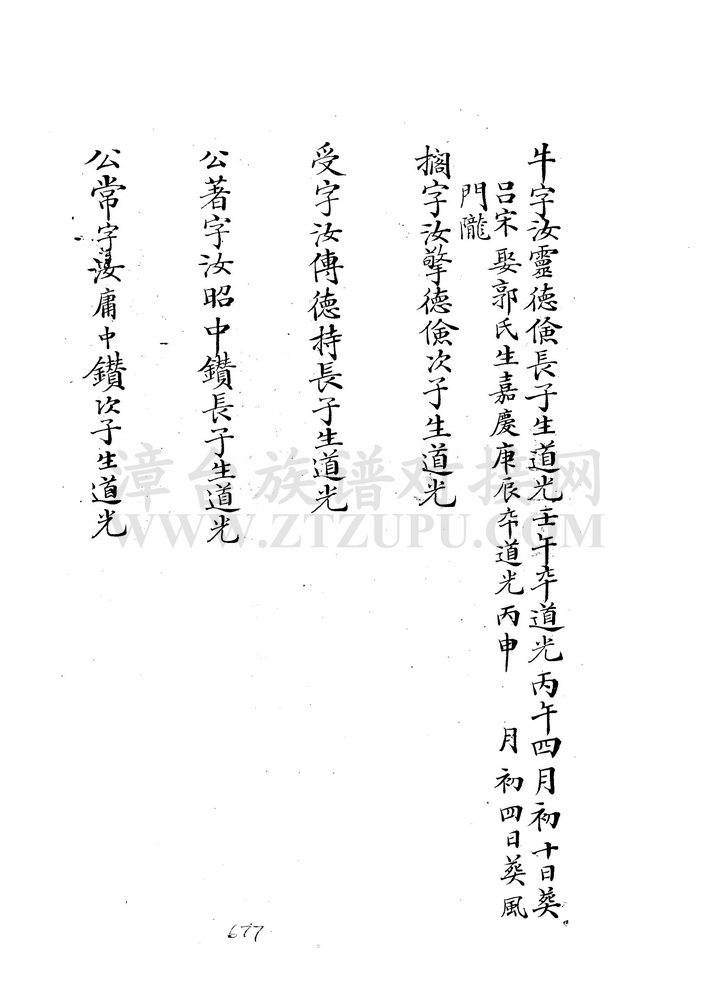 牛字汝靈德儉長子生道光壬午卒道光丙午四月初十日葵
呂宋娶郭氏生嘉慶庚辰卒道光丙申 月初四日葵風
門隴
擱字汝擎德儉次子生道光
受字汝傳德持長子生道光
公著字汝昭中鑽長子生道光
公常字汝庸中鑽次子生道光
漳台族谱对接网
WWW.ZTZUPU.COM
677